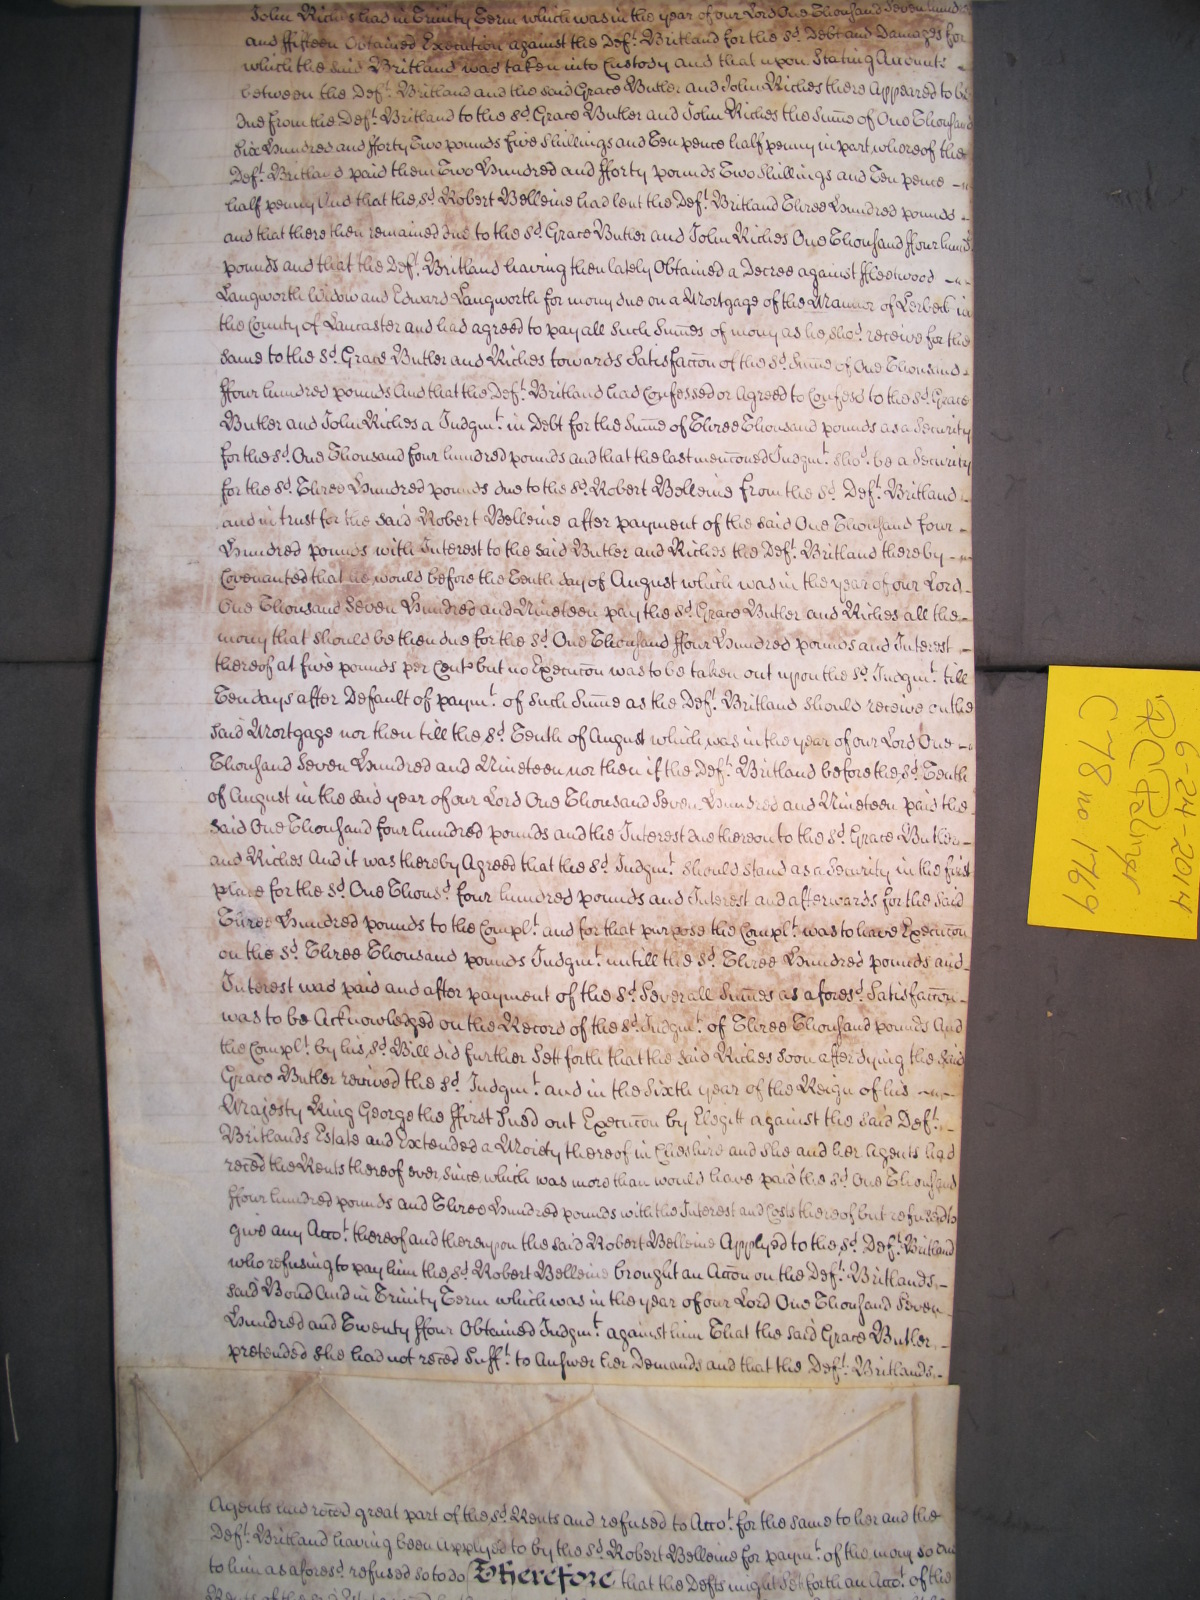 John Riches had in Trinity Term which was in the year of our Lord One Thousand Seven hundred
and ffifteen Obtained Execution against the Def.t Britland for the s.d Debt and Damages for
which the said Britland was taken into Custody and that upon Stating Accounts
between the Def.t Britland and the said Grace Butler and John Riches there Appeared to be
due from the Def.t Britland to the s.d Grace Butler and John Riches the Sume of One Thousand
Six Hundred and fforty Two pounds five Shillings and Ten pence half penny in part whereof the
Def.t Britland paid them Two Hundred and fforty pounds Two Shillings and Ten pence
half penny And that the s.d Robert Belleine had lent the Def.t Britland Three Hundred pounds
and that there then remained due to the s.d Grace Butler and John Riches One Thousand ffour hund.d
pounds and that the Def.t Britland having then lately Obtained a Decree against ffleetwood
Langworth Widow and Edward Langworth for mony due on a Mortgage of the Mannor of in
the County of Lancaster and had agreed to pay all Such Sumes of mony as he sho.d receive for the
same to the s.d Grace Butler and Riches towards Satisfaccon of the s.d Sume of One Thousand
ffour hundred pounds And that the Def.t Britland had Confessed or Agreed to Confess to the s.d Grace
Butler and John Riches a Judgm.t in Debt for the Sume of Three Thousand pounds as a Security
for the s.d One Thousand four hundred pounds and that the last menconed Judgm.t sho.d be a Security
for the s.d Three Hundred pounds due to the s.d Robert Belleine from the s.d Def.t Britland
and in trust for the said Robert Belleine after payment of the said One Thousand four
Hundred pounds with Interest to the said Butler and Riches the Def.t Britland thereby
Covenanted that he would before the Tenth day of August which was in the year of our Lord
One Thousand Seven Hundred and Nineteen pay the s.d Grace Butler and Riches all the
mony that should be then due for the s.d One Thousand ffour Hundred pounds and Interest
thereof at five pounds per Cent but no Execucon was to be taken out upon the s.d Judgm.t till
Ten days after Default of paym.t of such Sume as the Def.t Britland should receive on the
said Mortgage nor then till the s.d Tenth of August which was in the year of our Lord One
Thousand Seven Hundred and Nineteen nor then if the Def.t Britland before the s.d Tenth
of August in the said year of our Lord One Thousand Seven Hundred and Nineteen paid the
said One Thousand four hundred pounds and the Interest due thereon to the s.d Grace Butler
and Riches And it was thereby Agreed that the s.d Judgm.t should stand as a Security in the first
place for the s.d One Thous.d four hundred pounds and Interest and afterwards for the said
Three Hundred pounds to the Compl.t and for that purpose the Compl.t was to have Execucon
on the s.d Three Thousand pounds Judgm.t untill the s.d Three Hundred pounds and
Interest was paid and after payment of the s.d Severall Sumes as afores.d Satisfaccon
was to be Acknowledged on the Record of the s.d Judgm.t of Three Thousand pounds And
the Compl.t by his s.d Bill did further Sett forth that the said Riches soon after dying the said
Grace Butler revived the s.d Judgm.t and in the Sixth year of the Reign of his
Majesty King George the ffirst Sued out Execucon by Elegit against the said Def.t
Britlands Estate and Extended a Moiety thereof in Cheshire and She and her Agents had
reced the Rents thereof ever since which was more than would have paid the s.d One Thousand
ffour hundred pounds and Three Hundred pounds with the Interest and Costs thereof but refused to
give any Acco.t thereof and thereupon the said Robert Belleine Applyed to the s.d Def.t Britland
who refusing to pay him the s.d Robert Belleine brought an Accon on the Def.t Britlands
said Bond And in Trinity Term which was in the year of our Lord One Thousand Seven
Hundred and Twenty ffour Obtained Judgm.t against him That the said Grace Butler
pretended she had not reced Suff.t to Answer her Demands and that the Def.t Britlands
Agents had reced great part of the s.d Rents and refused to Acco.t for the same to her and the
Def.t Britland having been Applyed to by the s.d Robert Belleine for paym.t of the mony so due
to him as afores.d refused so to do Therefore that the Defts might Sett forth an Acco.t of the
6-24-2014
RC Palmer
C 78 no 1769